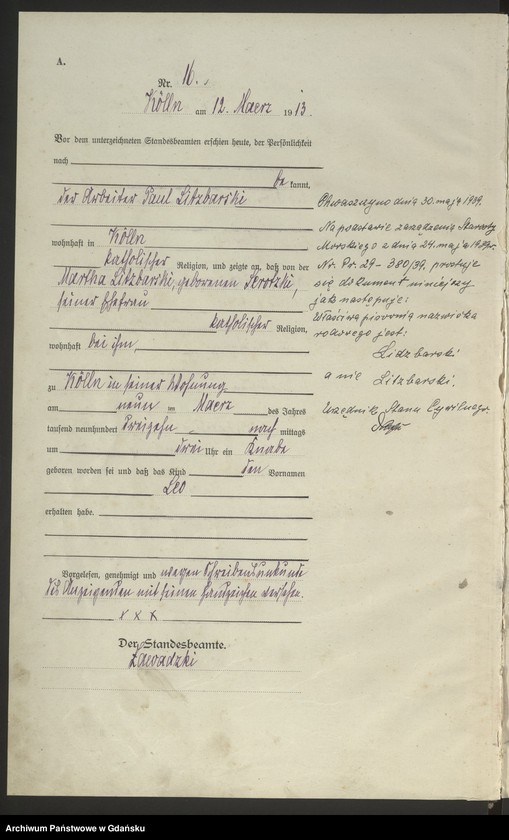 A.
Nr. 16.
Kölln am 12. Maerz 1913.
Vor dem unterzeichneten Standesbeamten erschien heute, der Persönlichkeit
nach
be kannt,
der Arbeiter Paul Litzbarski
wohnhaft in Kölln
katholischer Religion, und zeigte an, daß von der
Martha Litzbarski, geborenen
seiner Ehefrau
katholischer Religion,
wohnhaft bei ihm,
zu Kölln in seiner Wohnung
am neun ten Maerz des Jahres
tausend neunhundert dreizehn nach mittags
um drei Uhr ein Knabe
geboren worden sei und daß das Kind den Vornamen
Leo
erhalten habe.
Vorgelesen, genehmigt und wegen Schreibensunkunde
des Anzeigenden mit seinen Handzeichen versehen.
x x x
Der Standesbeamte.
Zawadzki
Chwaszczyno dnia 30. maja 1939.
Na podstawie zarządzenia Starosty
Morskiego z dnia 24. maja 1939r.
Nr. Pr. 29 - 380/39, prostuje
się dokument niniejszy
jak następuje:
Właściwą pisownią nazwiska
rodowego jest:
Lidzbarski
a nie Litzbarski.
Urzędnik Stanu Cywilnego.
Archiwum Państwowe w Gdańsku